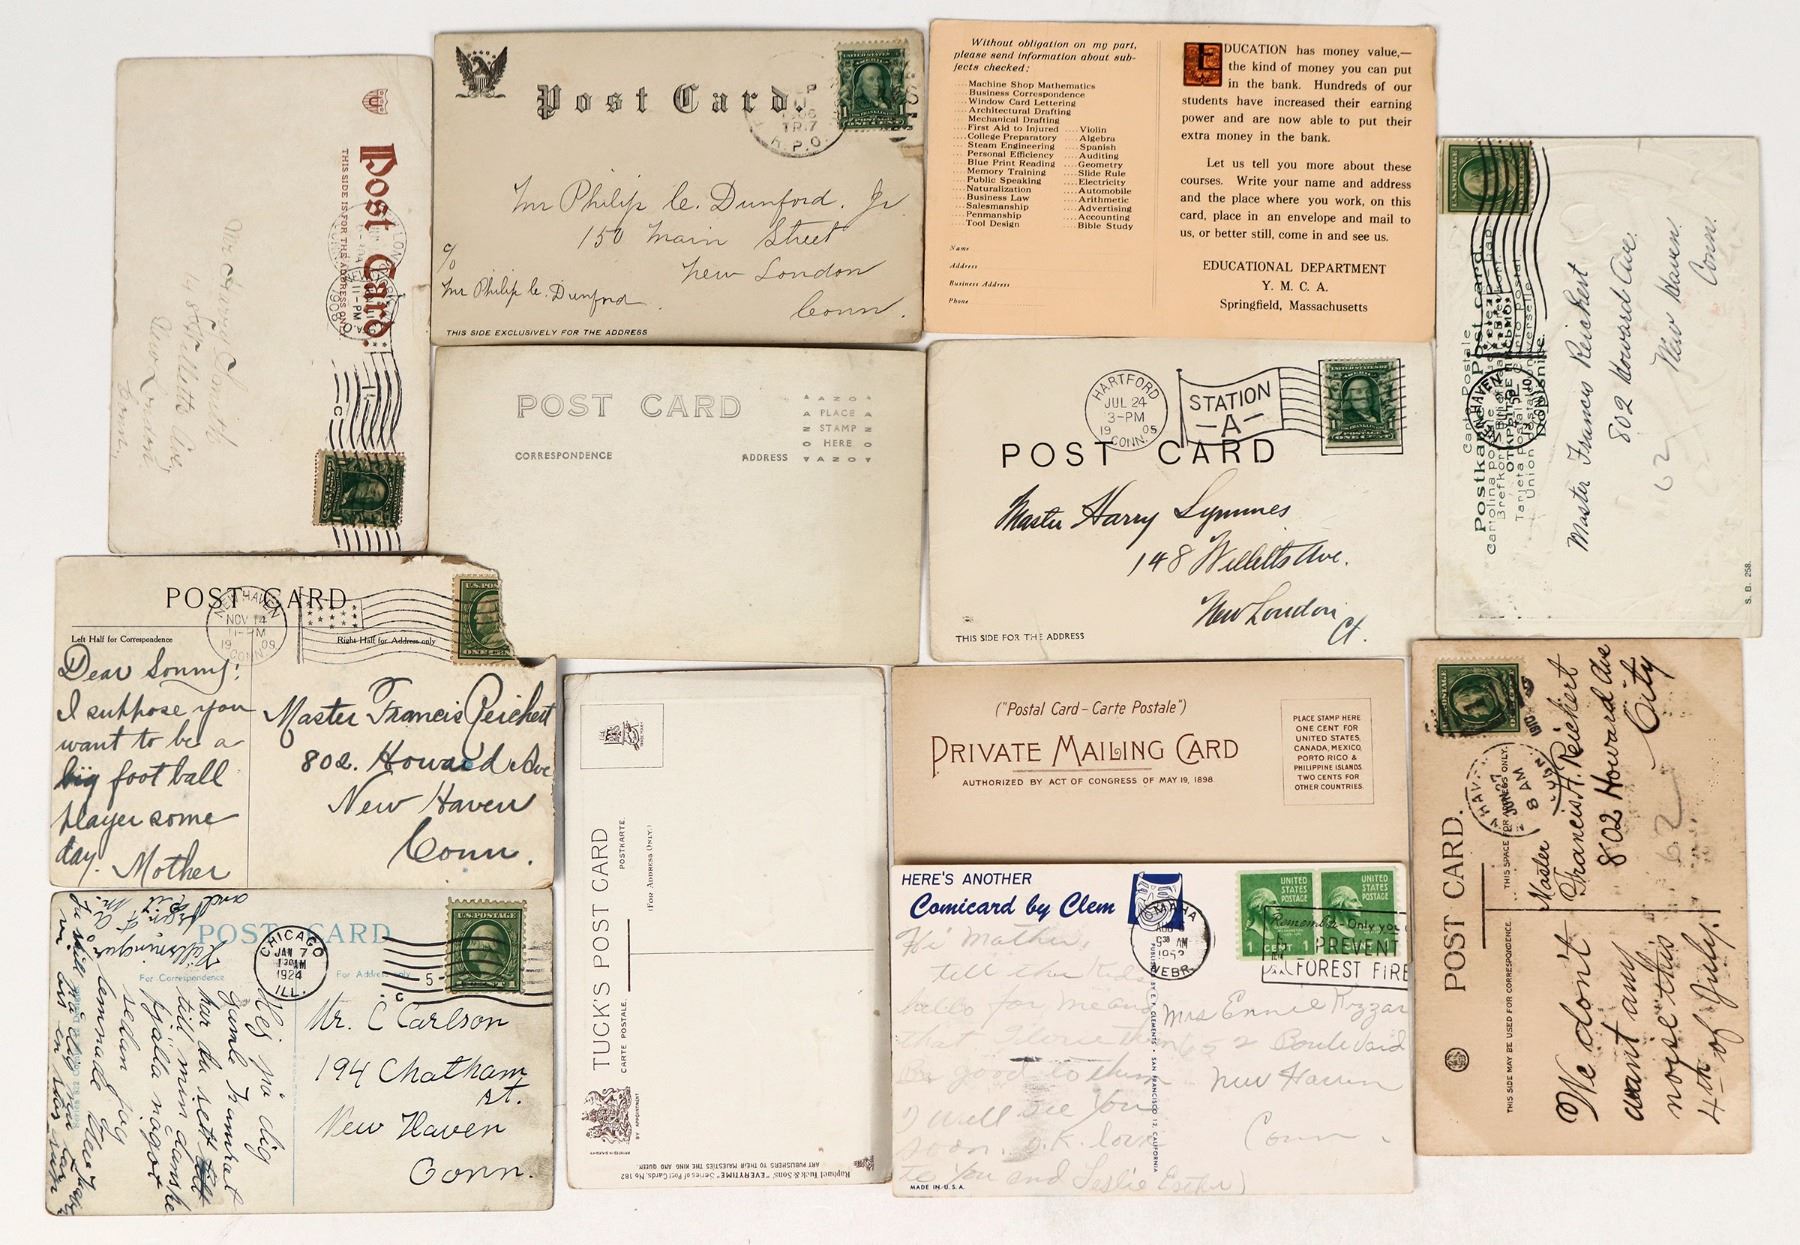 Post Card
THIS SIDE IS FOR THE ADDRESS ONLY
NEW LONDON
11-PM
1908
CONN.
Mr Harry
148 Willetts Ave.
New London
Conn.
Post Card.
1906
TR.7
R.P.O.
Mr Philip C. Dunford. Jr.
150 Main Street
c/o
New London
Mr Philip C. Dunford
Conn.
THIS SIDE EXCLUSIVELY FOR THE ADDRESS
Without obligation on my part,
please send information about sub-
jects checked:
Machine Shop Mathematics
Business Correspondence
Window Card Lettering
Architectural Drafting
Mechanical Drafting
First Aid to Injured
College Preparatory
Steam Engineering
Personal Efficiency
Blue Print Reading
Memory Training
Public Speaking
Naturalization
Business Law
Salesmanship
Penmanship
Tool Design
Violin
Algebra
Spanish
Auditing
Geometry
Slide Rule
Electricity
Automobile
Arithmetic
Advertising
Accounting
Bible Study
Name
Address
Business Address
Phone
EDUCATION has money value,—
the kind of money you can put
in the bank. Hundreds of our
students have increased their earning
power and are now able to put their
extra money in the bank.
Let us tell you more about these
courses. Write your name and address
and the place where you work, on this
card, place in an envelope and mail to
us, or better still, come in and see us.
EDUCATIONAL DEPARTMENT
Y. M. C. A.
Springfield, Massachusetts
POST CARD
CORRESPONDENCE
ADDRESS
AZO
PLACE
STAMP
HERE
HARTFORD
JUL 24
3-PM
1905
CONN.
STATION
-A-
POST CARD
Master Harry Symmes
148 Willetts Ave.
New London
Ct.
THIS SIDE FOR THE ADDRESS
Carte Postale
Postkarte. Post card.
Union postale universelle
NEW HAVEN
Master Francis Reichert
802 Howard Ave.
New Haven
Conn.
62
S. B. 258.
POST CARD
NEW HAVEN
NOV 14
11-PM
1909
CONN.
Left Half for Correspondence
Right Half for Address only
U.S. POS
ONE
Dear Sonny:
I suppose you
want to be a
big foot ball
player some
day. Mother
Master Francis Reichert
802. Howard Ave
New Haven
Conn.
POST CARD
For Correspondence
For Address only
CHICAGO
JAN 7
1 30 AM
1924
ILL.
5
C
U.S. POSTAGE
Mr. C Carlson
194 Chatham
st.
New Haven
Conn.
Hej på dig
gamle kamrat
har du sett
till min ganska
fjälla något
sedan jag
lämnade
TUCK'S POST CARD
CARTE POSTALE.
POSTKARTE.
(For Address Only.)
BY APPOINTMENT
Raphael Tuck & Sons' "EVERYTIME" Series of Post Cards, No 182
ART PUBLISHERS TO THEIR MAJESTIES THE KING AND QUEEN.
("Postal Card – Carte Postale")
PRIVATE MAILING CARD
AUTHORIZED BY ACT OF CONGRESS OF MAY 19, 1898.
PLACE STAMP HERE
ONE CENT FOR
UNITED STATES,
CANADA, MEXICO,
PORTO RICO &
PHILIPPINE ISLANDS.
TWO CENTS FOR
OTHER COUNTRIES.
HERE'S ANOTHER
Comicard by Clem
OMAHA
AUG
5 30 AM
1952
NEBR.
UNITED
STATES
POSTAGE
1 CENT 1
UNITED
STATES
POSTAGE
Remember-Only you
PREVENT
FOREST FIRE
Hi Mother,
tell the Kids
hello for me and
that I love them
Be good to them
I will see you
soon. O.K. love
to you and Leslie Esther
Mrs Ennie
652 Boulevard
New Haven
Conn.
CLEMENTS • SAN FRANCISCO 12, CALIFORNIA
MADE IN U.S.A.
POST CARD.
THIS SPACE FOR ADDRESS ONLY.
THIS SIDE MAY BE USED FOR CORRESPONDENCE.
N. HAVEN
JUN 27
8 AM
Master
Francis A. Reichert
802 Howard Ave
City
62
We don't
want any
noise this
4th of July.